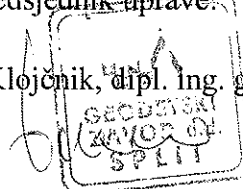 edsjednik uprave:
Klojčnik, dipl. ing. g
GEODETSKI
ZAVOD d.d.
SPLIT